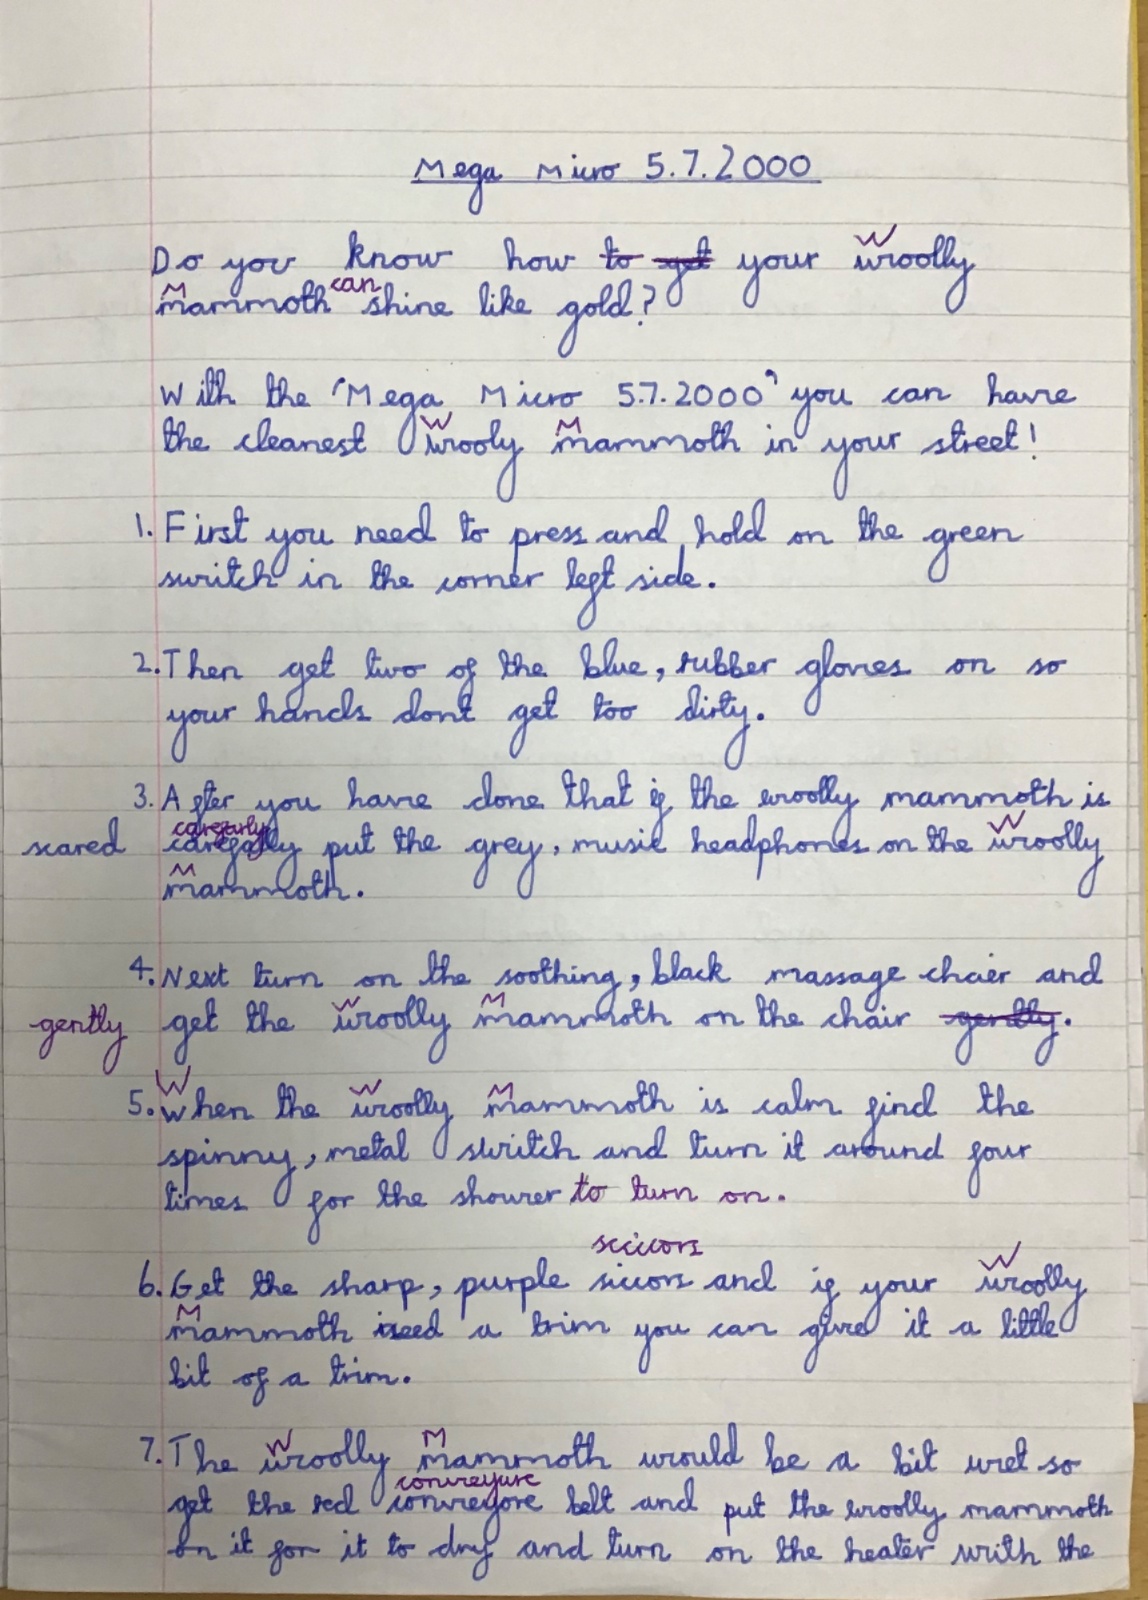 Mega Micro 5.7.2000
Do you know how to get your Woolly
Mammoth can shine like gold?
With the "Mega Micro 5.7.2000" you can have
the cleanest Wooly Mammoth in your street!
1. First you need to press and hold on the green
switch in the corner left side.
2. Then get two of the blue, rubber gloves on so
your hands dont get too dirty.
3. After you have done that if the woolly mammoth is
scared carefarly put the grey, music headphones on the Woolly
Mammoth.
4. Next turn on the soothing, black massage chair and
gently get the Woolly Mammoth on the chair gently.
5. When the Woolly Mammoth is calm find the
spinny, metal switch and turn it around four
times for the shower to turn on.
sciccors
6. Get the sharp, purple siccors and if your Woolly
Mammoth need a trim you can give it a little
bit of a trim.
7. The Woolly Mammoth would be a bit wet so
conveyure
get the red conveyore belt and put the woolly mammoth
on it for it to dry and turn on the heater with the